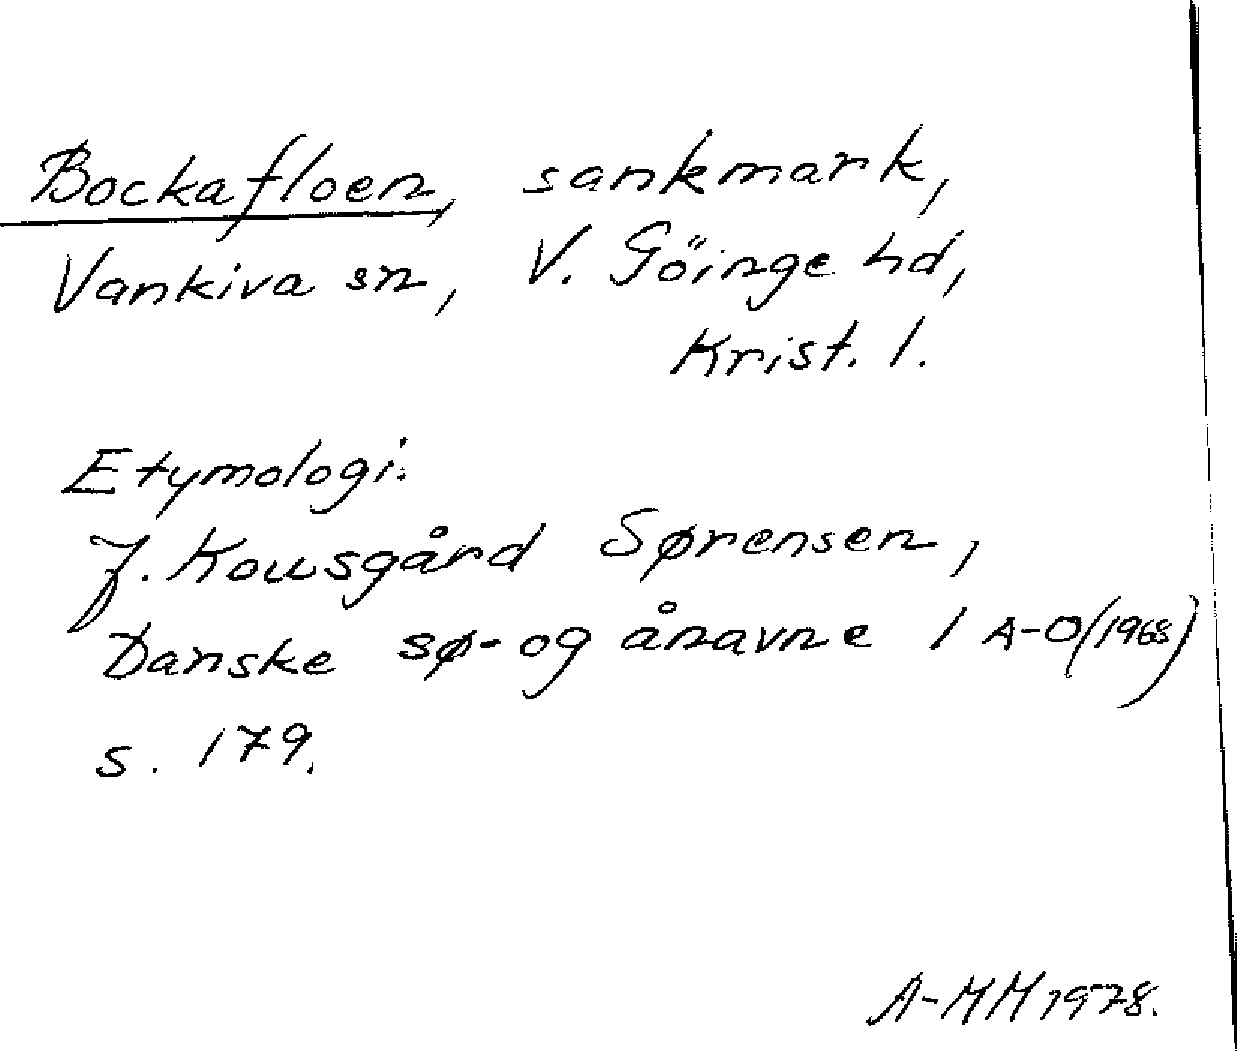 Bockafloen, sankmark,
Vankiva sn, V. Göinge hd,
Krist. l.
Etymologi:
J. Kousgård Sørensen,
Danske sø- og ånavne 1 A-O (1968)
s. 179.
A-MM 1978.